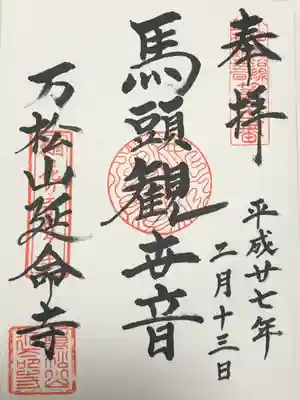 奉拝
平成廿七年
二月十三日
馬頭観世音
万松山延命寺